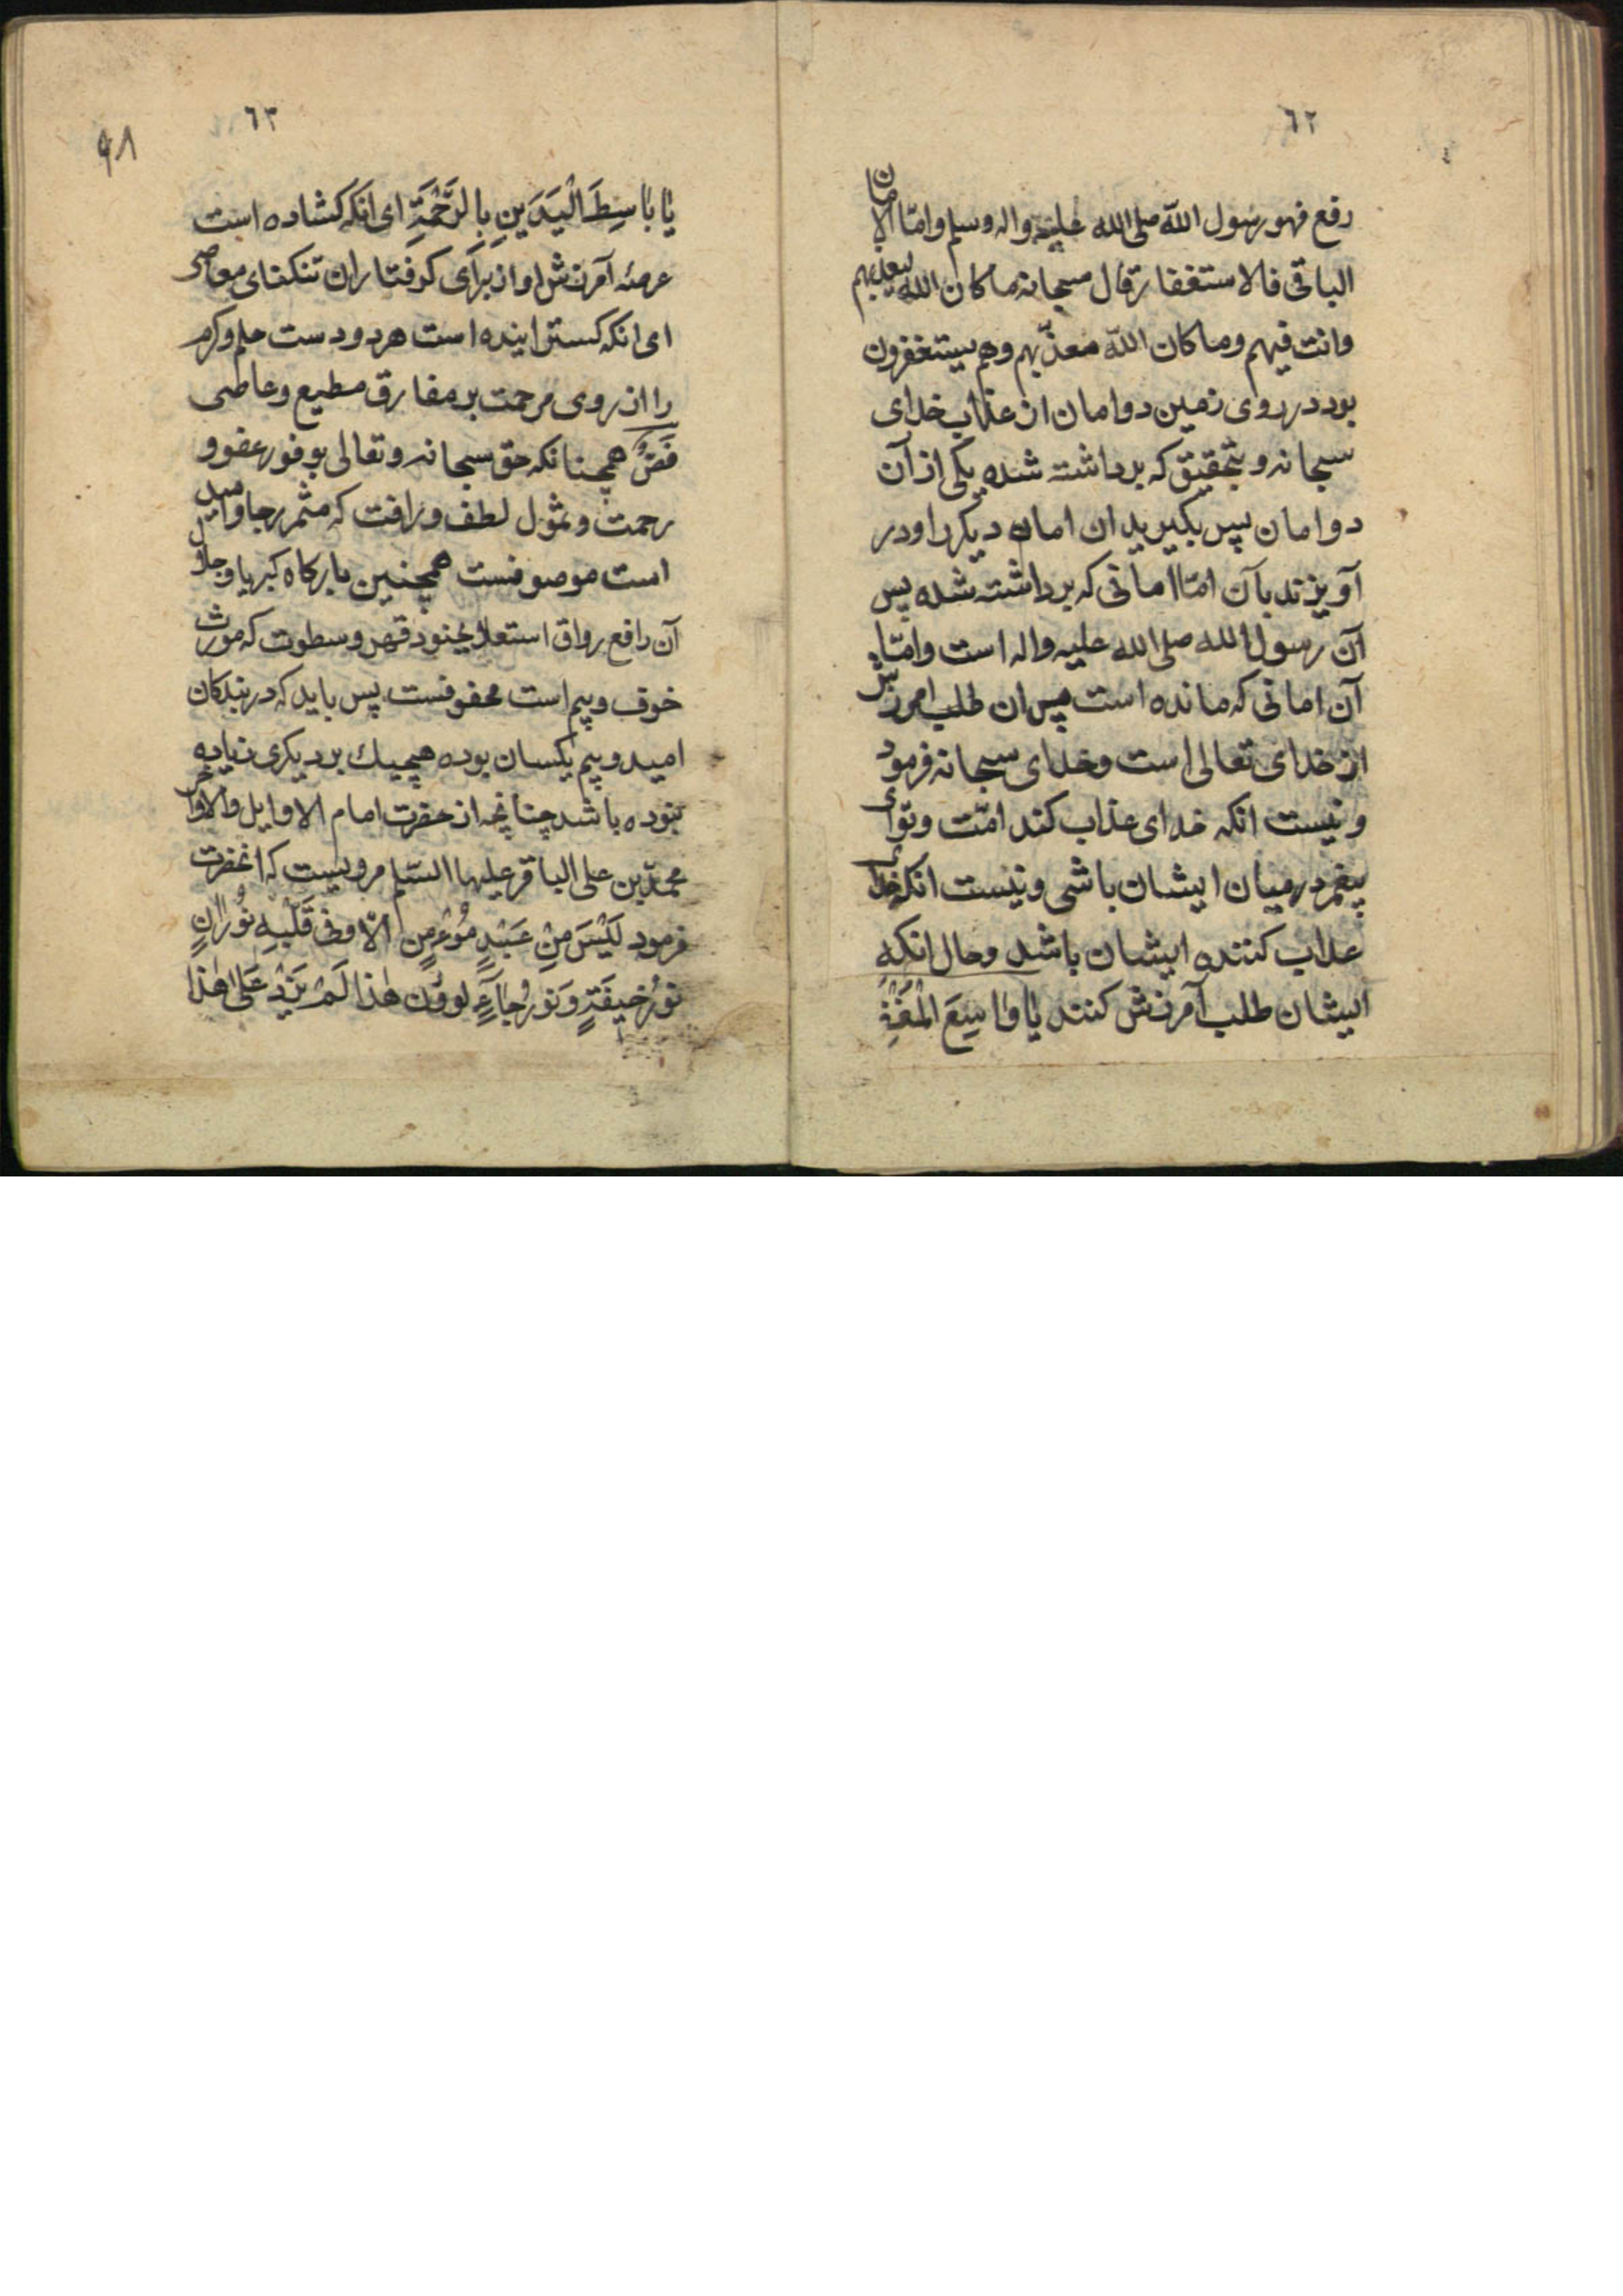 ٦٢
رفع فهو رسول الله صلى الله عليه واله وسلم واما الامان
الباقى فالاستغفار قال سبحانه ما كان الله ليعذبهم
وانت فيهم وما كان الله معذّبهم وهم يستغفرون
بود در روى زمين دو امان از عذاب خداى
سبحانه و بتحقيق كه برداشته شده يكى از آن
دو امان پس بكيريد ان امان ديكر را و در
آويزند بآن امّا امانى كه برداشته شده پس
آن رسول الله صلى الله عليه واله است وامّا
آن امانى كه مانده است پس ان طلب امرزش
از خداى تعالى است وخداى سبحانه فرمود
و نيست انكه خداى عذاب كند امّت وتو اى
پيغمبر در ميان ايشان باشى و نيست انكه خداى
عذاب كننده ايشان باشد وحال انكه
ايشان طلب آمرزش كنند يٰا وٰاسِعَ الْمَغْفِ
٦٣
٩٨
يٰا بٰاسِطَ الْيَدَيْنِ بِالرَّحْمَةِ اى انكه كشاده است
عرصهٔ آمرزش او از براى كرفتاران تنكناى معاصى
اى انكه كستراينده است هر دو دست حلم وكرم
را از روى مرحمت بر مفارق مطيع وعاصى
همچنانكه حق سبحانه وتعالى بوفور عفو و
رحمت وشمول لطف ورافت كه مثمر رجا واميد
است موصوفست همچنين باركاه كبريا وجلال
آن رافع رواق استعلا بجنود قهر وسطوت كه مورث
خوف وبيم است محفوفست پس بايد كه در بندكان
اميد وبيم يكسان بوده هيچيك بر ديكرى زياده
نبوده باشد چنانچه از حضرت امام الاوايل والاواخر
محمّد بن على الباقر عليهما السّلام مرويست كه انحضرت
فرمود لَيْسَ مِنْ عَبْدٍ مُؤمِنٍ الّا وفى قَلْبِهِ نُورٰانِ
نُورُ خيفَةٍ وَنُورُ رجٰاءٍ لو وُزن هٰذا لَمْ يَزِدْ عَلىٰ هٰذا